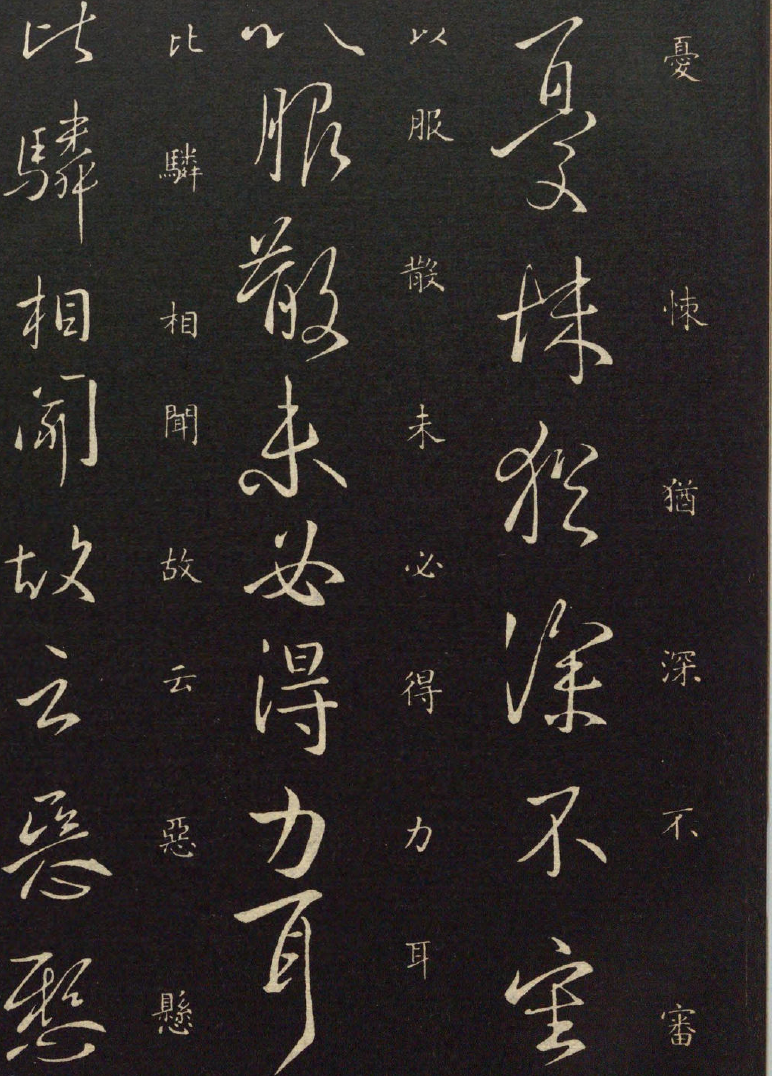 憂悚猶深不審
憂悚猶深不審
以服散未必得力耳
以服散未必得力耳
比驎相聞故云惡懸
比驎相聞故云惡懸